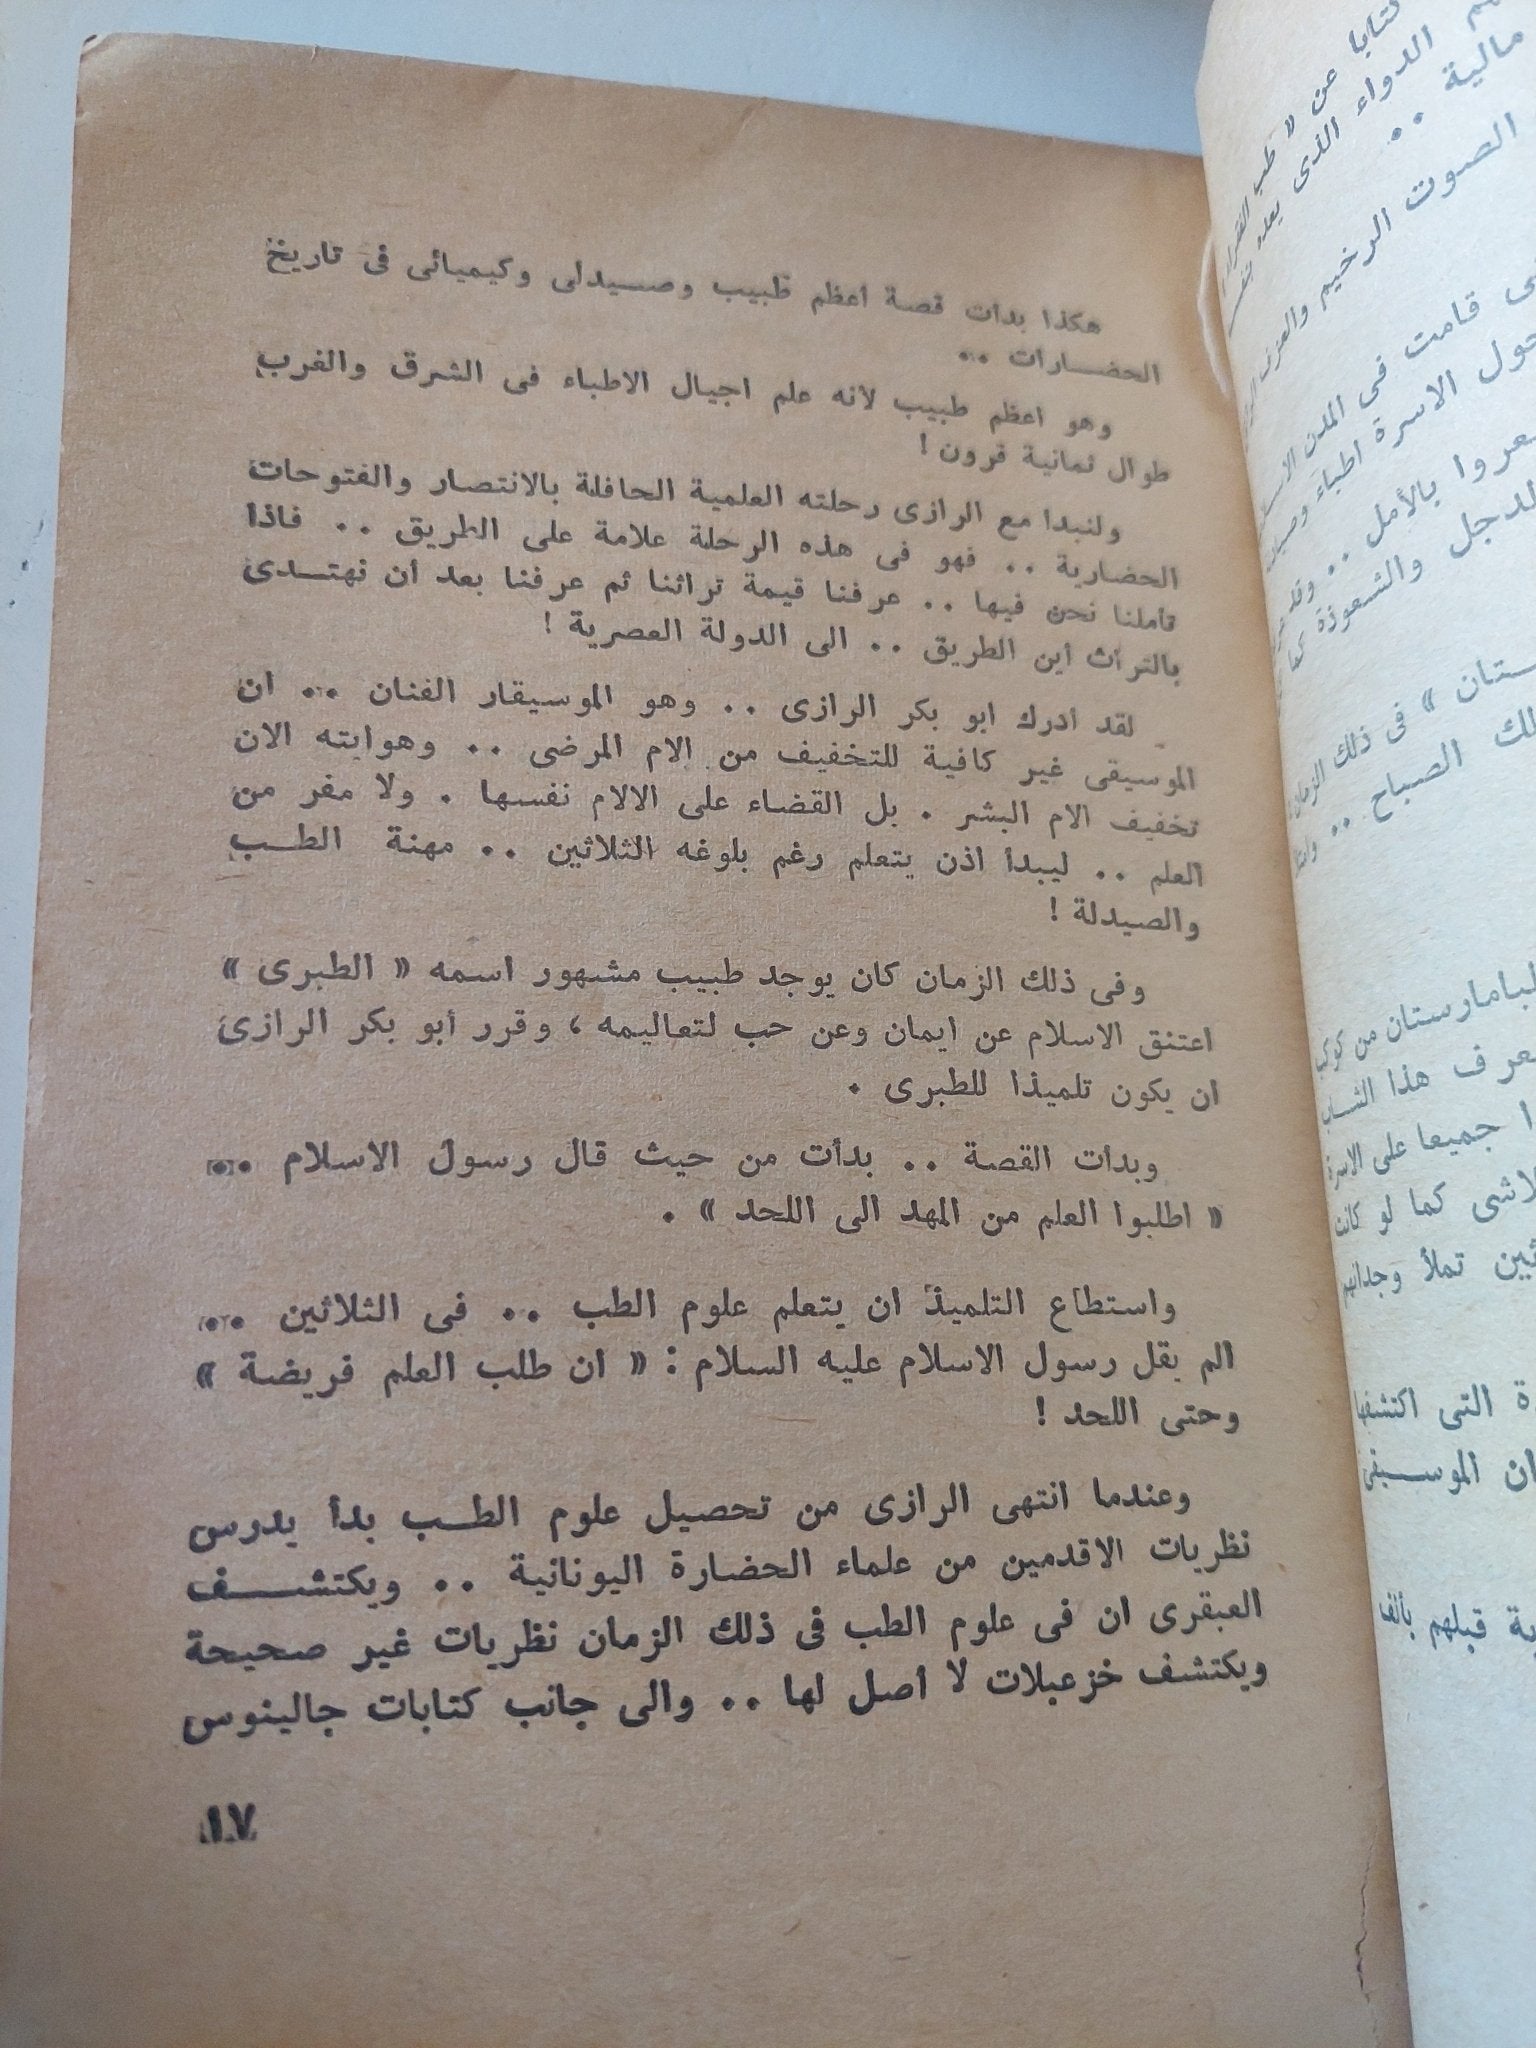 هكذا بدأت قصة أعظم طبيب وصيدلى وكيميائى فى تاريخ
الحضارات ..
وهو أعظم طبيب لأنه علم أجيال الاطباء فى الشرق والغرب
طوال ثمانية قرون !
ولنبدا مع الرازى رحلته العلمية الحافلة بالانتصار والفتوحات
الحضارية .. فهو فى هذه الرحلة علامة على الطريق .. فاذا
تأملنا نحن فيها .. عرفنا قيمة تراثنا ثم عرفنا بعد أن نهتدى
بالتراث أين الطريق .. الى الدولة العصرية !
لقد أدرك ابو بكر الرازى .. وهو الموسيقار الفنان .. ان
الموسيقى غير كافية للتخفيف من الام المرضى .. وهوايته الان
تخفيف الام البشر . بل القضاء على الالام نفسها . ولا مفر من
العلم .. ليبدأ اذن يتعلم رغم بلوغه الثلاثين .. مهنة الطب
والصيدلة !
وفى ذلك الزمان كان يوجد طبيب مشهور اسمه « الطبرى »
اعتنق الاسلام عن ايمان وعن حب لتعاليمه ، وقرر أبو بكر الرازى
ان يكون تلميذا للطبرى .
وبدات القصة .. بدأت من حيث قال رسول الاسلام ..
« اطلبوا العلم من المهد الى اللحد » .
واستطاع التلميذ ان يتعلم علوم الطب .. فى الثلاثين ..
الم يقل رسول الاسلام عليه السلام : « ان طلب العلم فريضة »
وحتى اللحد !
وعندما انتهى الرازى من تحصيل علوم الطب بدأ يدرس
نظريات الاقدمين من علماء الحضارة اليونانية .. ويكتشف
العبقرى ان فى علوم الطب فى ذلك الزمان نظريات غير صحيحة
ويكتشف خزعبلات لا أصل لها .. والى جانب كتابات جالينوس
١٧
كتابا عن « طب الفقراء
الدواء الذى يعد
مالية ..
الصوت الرخيم والعزف
قامت فى المدن
حول الاسرة اطباء
بالأمل ..
والشعوذة
ستان » فى ذلك الزمان
الصباح ..
البامارستان من
هذا الشاب
جميعا على الاسرة
كما لو كانت
تملأ وجدانهم
التى اكتشفها
ان الموسيقى
قبلهم